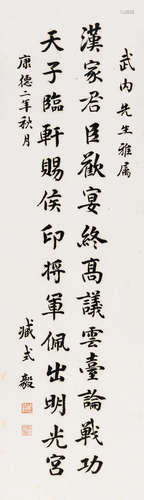 武内先生雅属
漢家君臣歡宴終高議雲臺論戰功
天子臨軒賜侯印将軍佩出明光宮
康德二年秋月
臧式毅